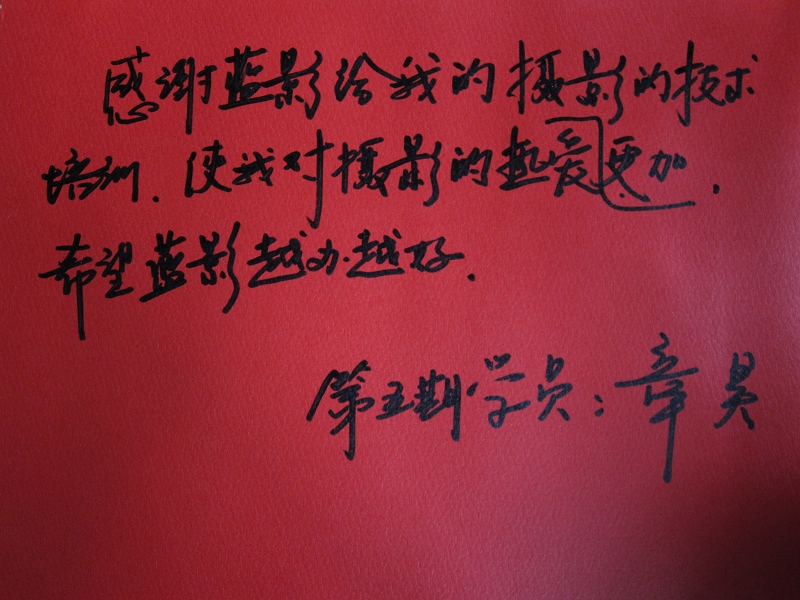 感谢蓝影给我的摄影的技术
培训.使我对摄影的热爱更加.
希望蓝影越办越好.
第五期学员:章昊